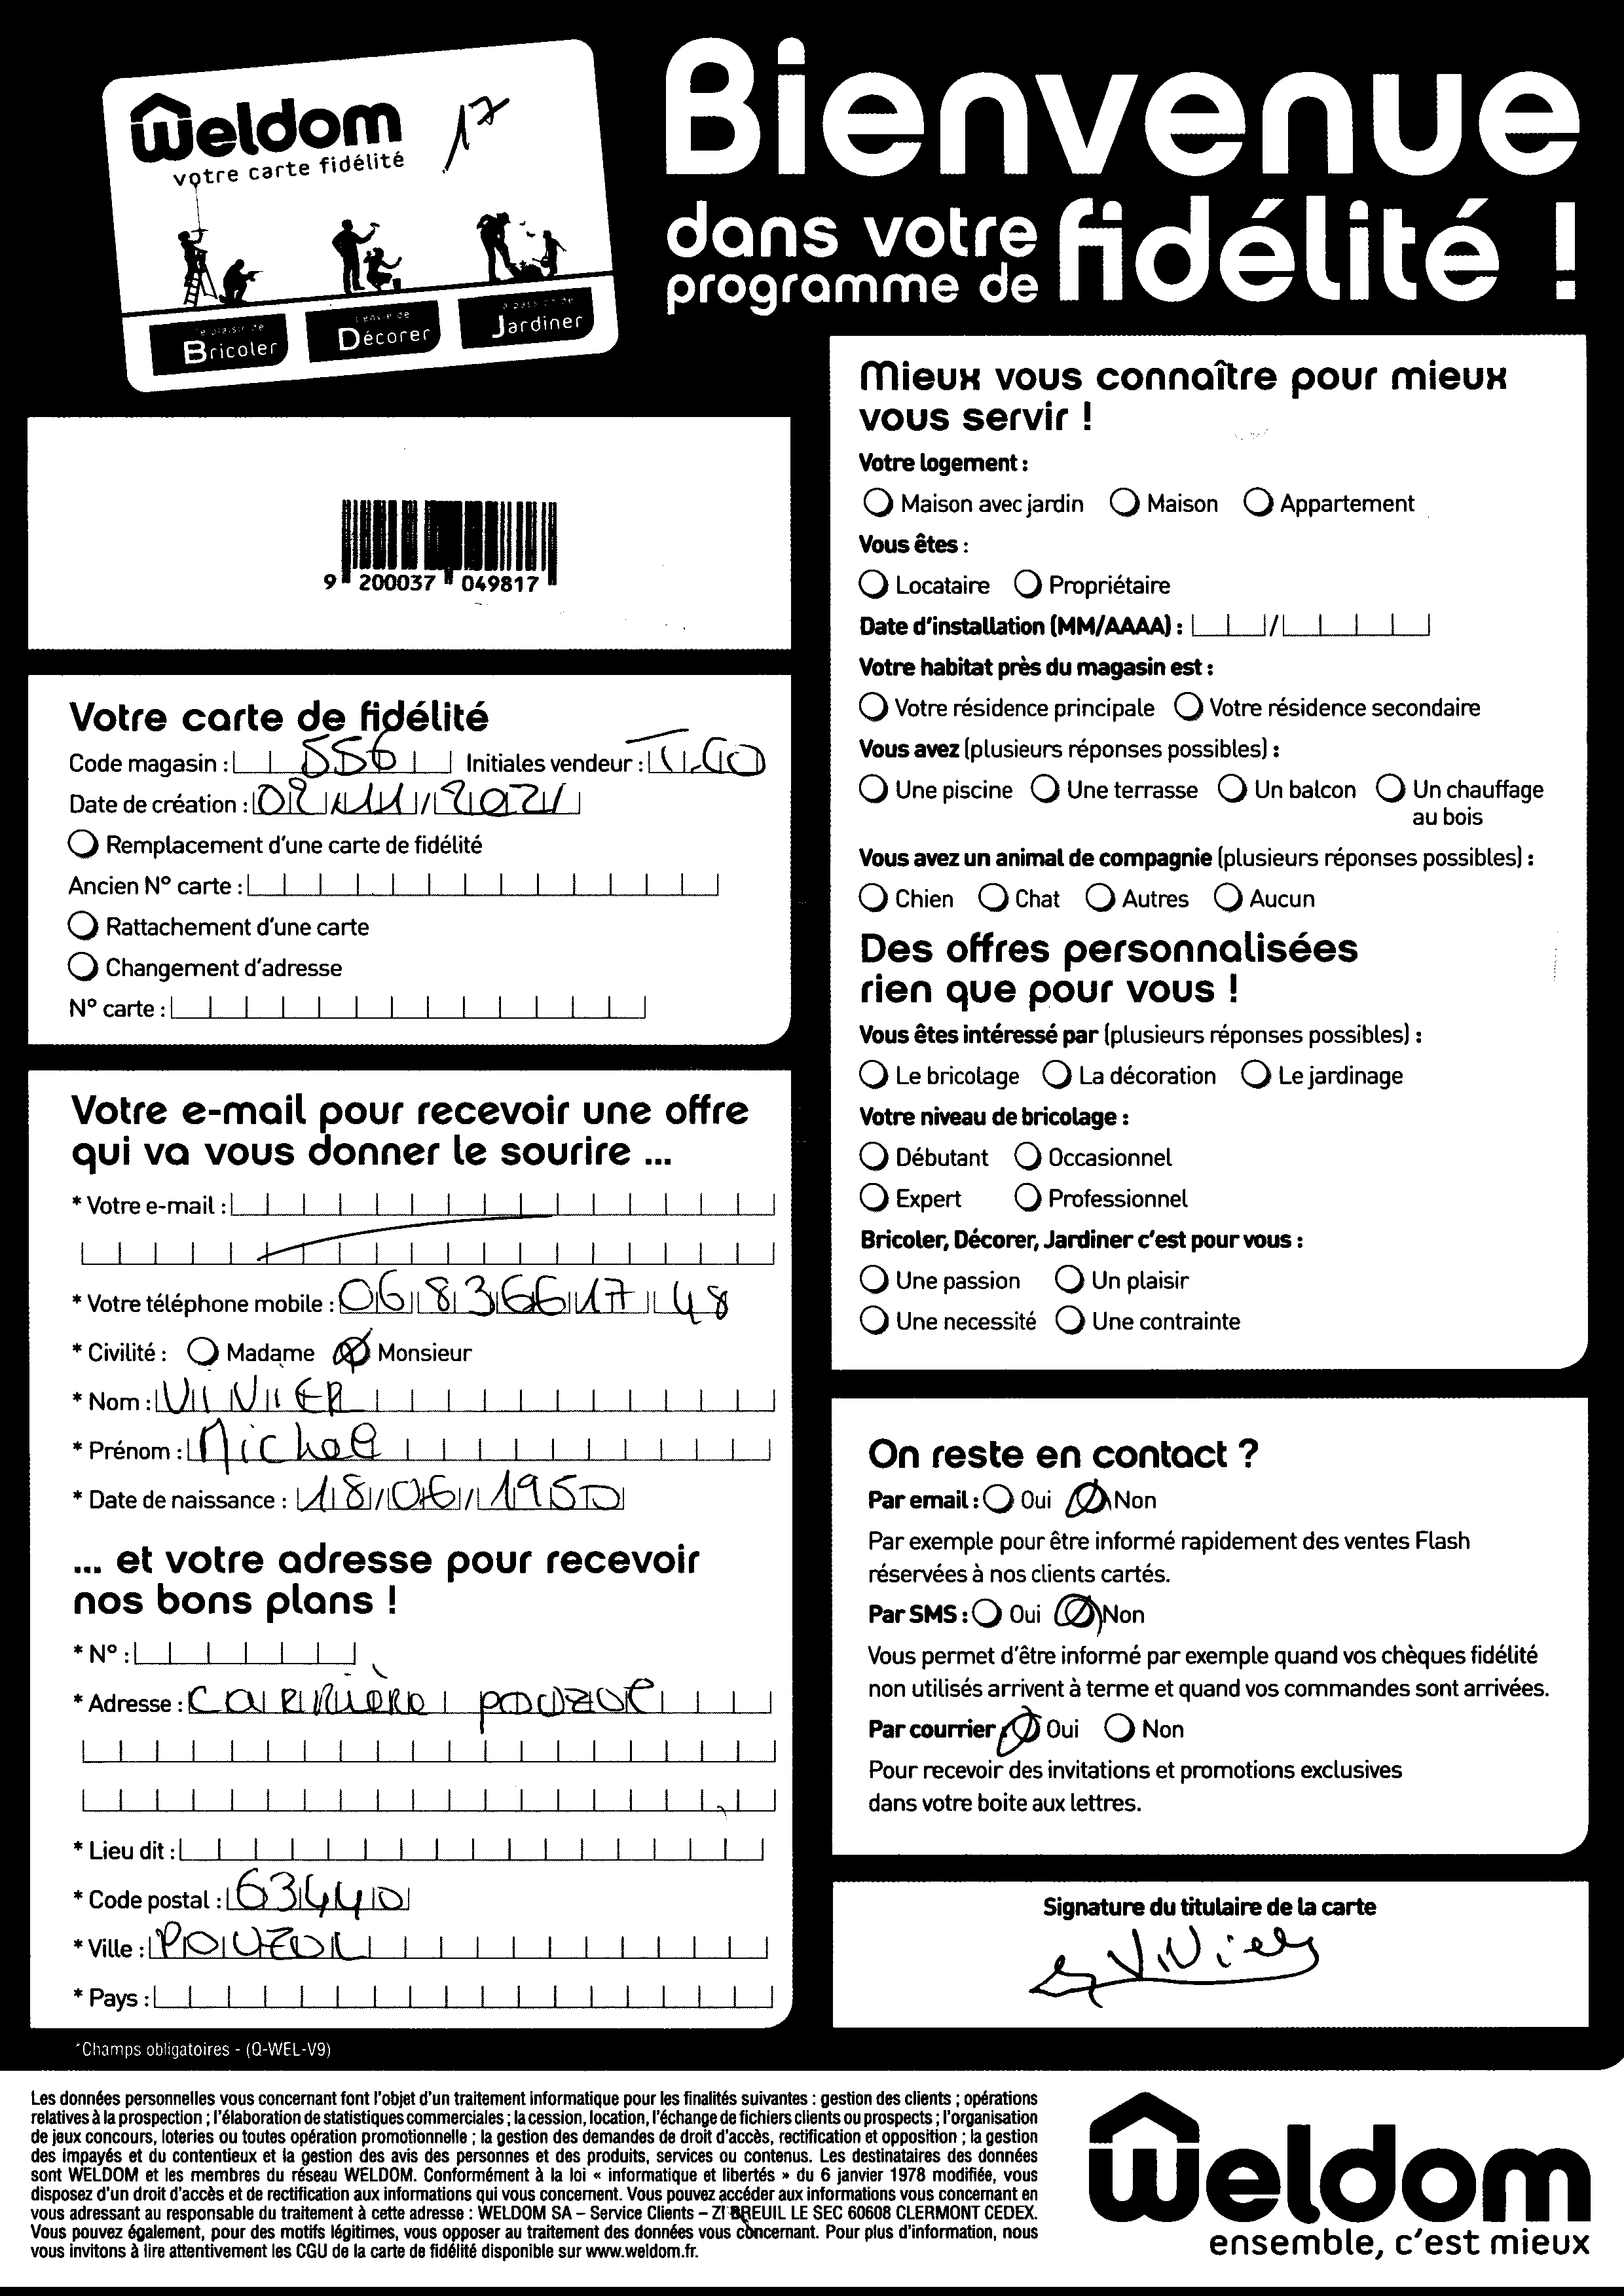 Weldom
votre carte fidélité
17
Le plaisir de
Bricoler
L'envie de
Décorer
Jardiner
Bienvenue
dans votre
programme de fidélité !
9 200037 049817
Votre carte de fidélité
Code magasin : 556 Initiales vendeur :
Date de création : 02/11/2021
Remplacement d'une carte de fidélité
Ancien N° carte :
Rattachement d'une carte
Changement d'adresse
N° carte :
Votre e-mail pour recevoir une offre
qui va vous donner le sourire ...
* Votre e-mail :
* Votre téléphone mobile : 06 83 66 17 48
* Civilité : Madame Monsieur
* Nom : VIVIER
* Prénom : Michel
* Date de naissance : 18/06/1950
... et votre adresse pour recevoir
nos bons plans !
* N° :
* Adresse : Carrière
* Lieu dit :
* Code postal : 63440
* Ville : POUZOL
* Pays :
*Champs obligatoires - (Q-WEL-V9)
Mieux vous connaître pour mieux
vous servir !
Votre logement :
Maison avec jardin Maison Appartement
Vous êtes :
Locataire Propriétaire
Date d'installation (MM/AAAA) : /
Votre habitat près du magasin est :
Votre résidence principale Votre résidence secondaire
Vous avez (plusieurs réponses possibles) :
Une piscine Une terrasse Un balcon Un chauffage
au bois
Vous avez un animal de compagnie (plusieurs réponses possibles) :
Chien Chat Autres Aucun
Des offres personnalisées
rien que pour vous !
Vous êtes intéressé par (plusieurs réponses possibles) :
Le bricolage La décoration Le jardinage
Votre niveau de bricolage :
Débutant Occasionnel
Expert Professionnel
Bricoler, Décorer, Jardiner c'est pour vous :
Une passion Un plaisir
Une necessité Une contrainte
On reste en contact ?
Par email : Oui Non
Par exemple pour être informé rapidement des ventes Flash
réservées à nos clients cartés.
Par SMS : Oui Non
Vous permet d'être informé par exemple quand vos chèques fidélité
non utilisés arrivent à terme et quand vos commandes sont arrivées.
Par courrier Oui Non
Pour recevoir des invitations et promotions exclusives
dans votre boite aux lettres.
Signature du titulaire de la carte
Vivier
Les données personnelles vous concernant font l'objet d'un traitement informatique pour les finalités suivantes : gestion des clients ; opérations
relatives à la prospection ; l'élaboration de statistiques commerciales ; la cession, location, l'échange de fichiers clients ou prospects ; l'organisation
de jeux concours, loteries ou toutes opération promotionnelle ; la gestion des demandes de droit d'accès, rectification et opposition ; la gestion
des impayés et du contentieux et la gestion des avis des personnes et des produits, services ou contenus. Les destinataires des données
sont WELDOM et les membres du réseau WELDOM. Conformément à la loi « informatique et libertés » du 6 janvier 1978 modifiée, vous
disposez d'un droit d'accès et de rectification aux informations qui vous concernent. Vous pouvez accéder aux informations vous concernant en
vous adressant au responsable du traitement à cette adresse : WELDOM SA – Service Clients – ZI BREUIL LE SEC 60608 CLERMONT CEDEX.
Vous pouvez également, pour des motifs légitimes, vous opposer au traitement des données vous concernant. Pour plus d'information, nous
vous invitons à lire attentivement les CGU de la carte de fidélité disponible sur www.weldom.fr.
Weldom
ensemble, c'est mieux